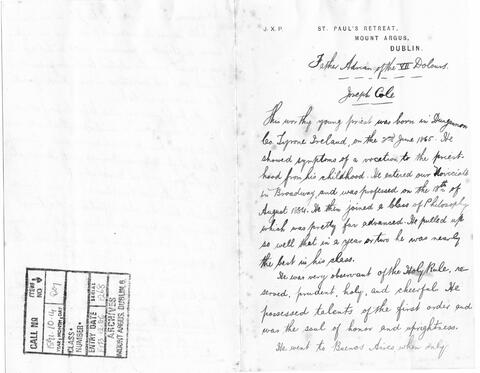 J.X.P.
ST. PAUL'S RETREAT,
MOUNT ARGUS,
DUBLIN.
Father Adrian of the VII Dolours.
Joseph Cole
This worthy young priest was born in Dungannon
Co. Tyrone Ireland, on the 2nd June 1865. He
showed symptoms of a vocation to the priest-
hood from his childhood. He entered our Noviciate
in Broadway, and was professed on the of
August 1884. He then joined a class of Philosophy
which was pretty far advanced. He pulled up
so well that in a year or two he was nearly
the best in his class.
He was very observant of the Holy Rule, re-
served, prudent, holy, and cheerful. He
possessed talents of the first order and
was the soul of honor and uprightness.
He went to Buenos Aires when only
ITEM NO
CALL NO
YEAR, MONTH, DAY
CLASS
NUMBER
ENTRY DATE
SERIAL
ARCHIVES
MOUNT ARGUS, DUBLIN 6